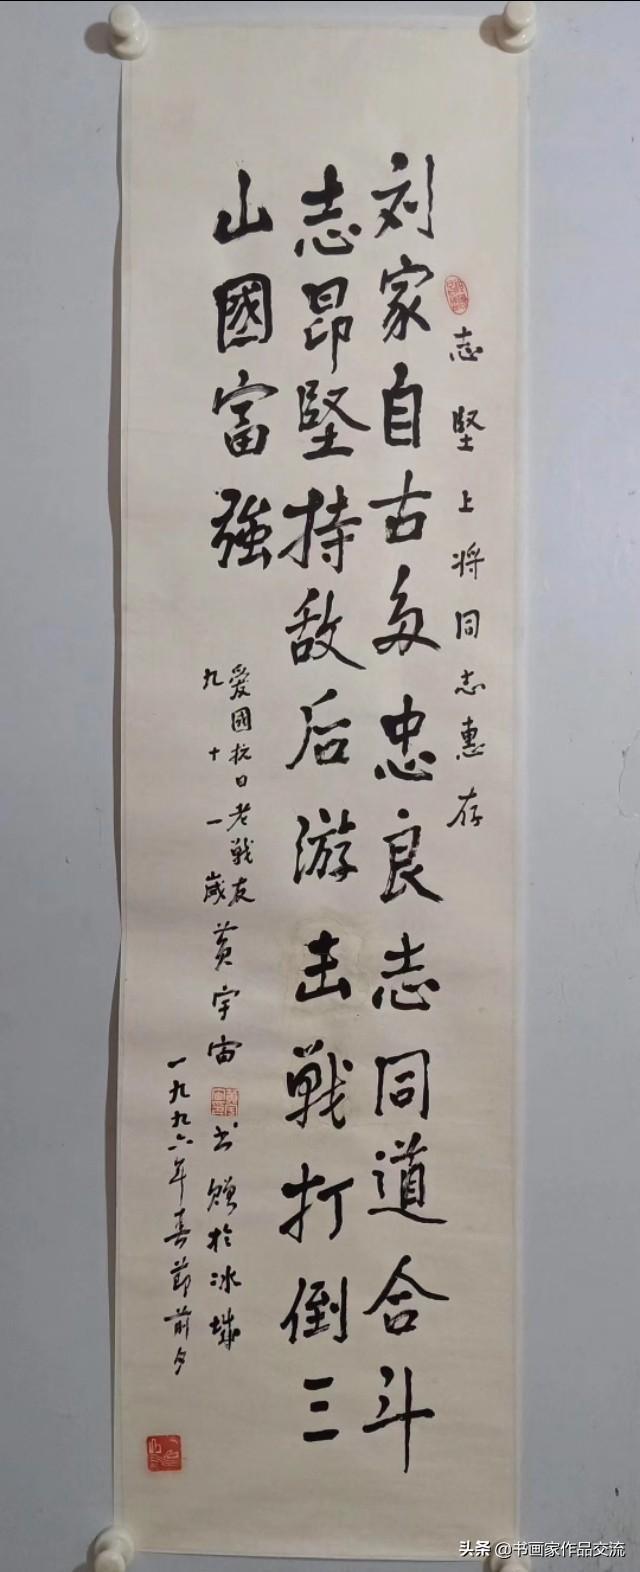 志堅上将同志惠存
刘家自古多忠良志同道合斗
志昂堅持敌后游击戰打倒三
山國富強
爱國抗日老戰友
九十一歲黄宇宙书贈於冰城
一九九六年春節前夕
头条 @书画家作品交流